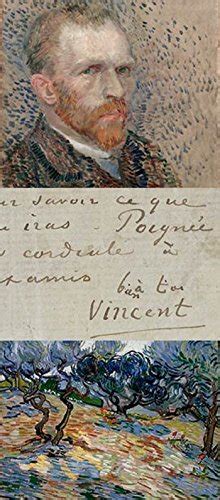 ur savoir ce que
iras – Poignée
cordiale à
amis bien à toi
Vincent